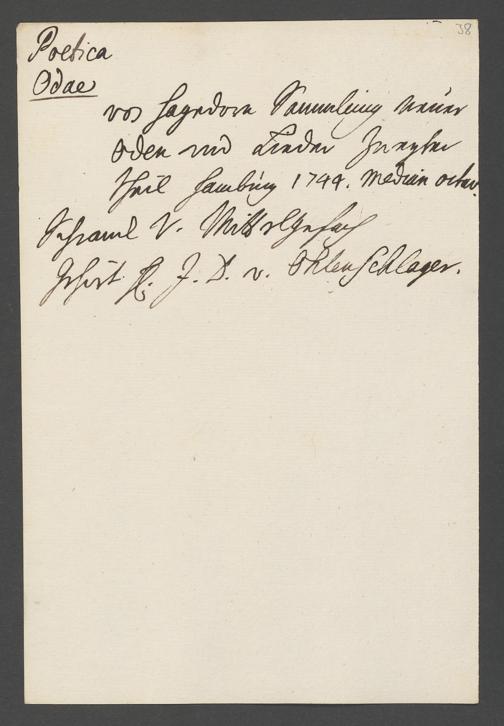 38
Poetica
Odae
von Hagedorn Sammlung neuer
Oden und Lieder Zweyter
Theil Hamburg 1744. Median octav.
Schranck V. Mittelgefach
gehört H. J. D. v. Ohlenschlager.